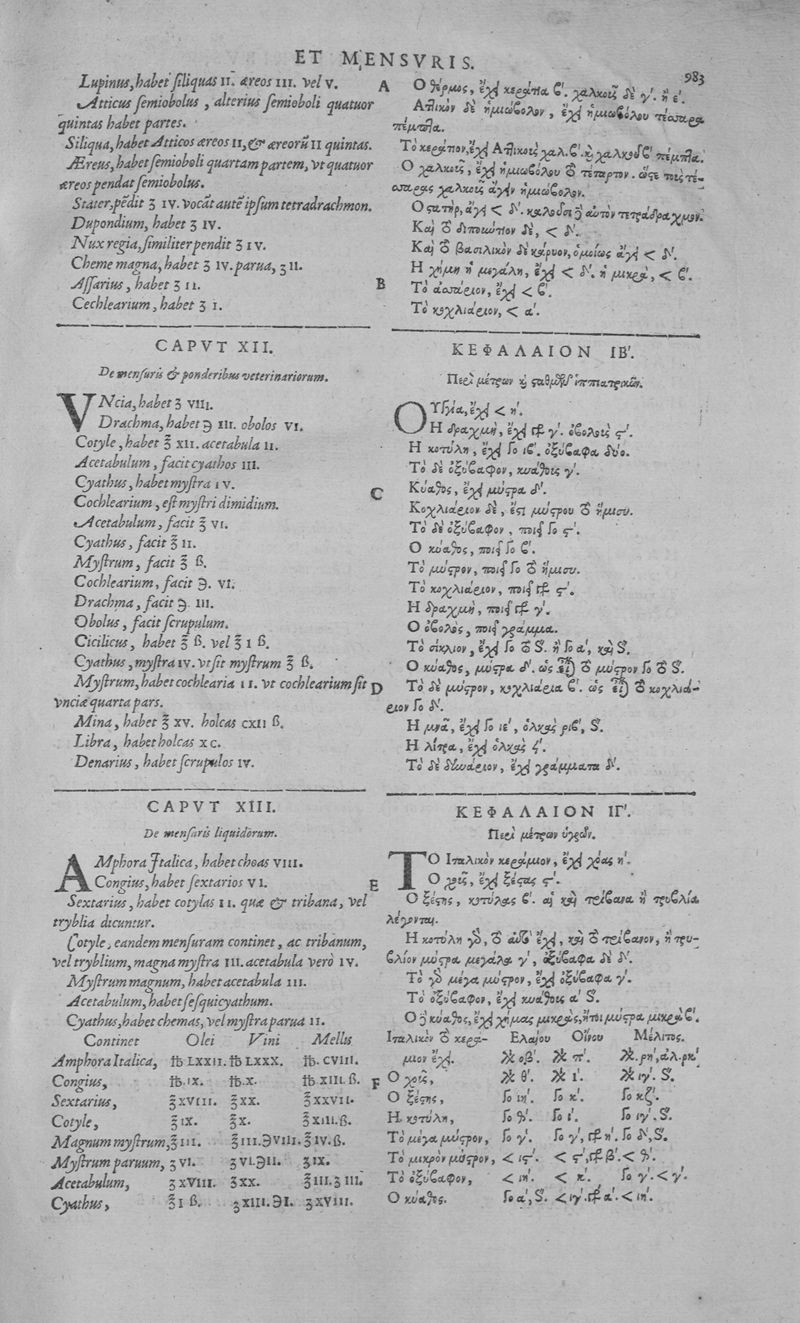 ET MENSVRIS.
983
Lupinus, habet siliquas II. æreos III. vel V.
Atticus semiobolus, alterius semioboli quatuor
quintas habet partes.
Siliqua, habet Atticos æreos II, & æreorũ II quintas.
Æreus, habet semioboli quartam partem, vt quatuor
æreos pendat semiobolus.
Stater, pẽdit ʒ IV. vocãt autẽ ipsum tetradrachmon.
Dupondium, habet ʒ IV.
Nux regia, similiter pendit ʒ IV.
Cheme magna, habet ʒ IV. parua, ʒ II.
Assarius, habet ʒ II.
Cechlearium, habet ʒ I.
CAPVT XII.
De mensuris & ponderibus veterinariorum.
VNcia, habet ʒ VIII.
Drachma, habet ℈ III. obolos VI.
Cotyle, habet ℥ XII. acetabula II.
Acetabulum, facit cyathos III.
Cyathus, habet mystra IV.
Cochlearium, est mystri dimidium.
Acetabulum, facit ℥ VI.
Cyathus, facit ℥ II.
Mystrum, facit ℥ ß.
Cochlearium, facit ℈. VI.
Drachma, facit ℈. III.
Obolus, facit scrupulum.
Cicilicus, habet ℥ ß. vel ℥ I ß.
Cyathus, mystra IV. vt sit mystrum ℥ ß.
Mystrum, habet cochlearia II. vt cochlearium sit
vnciæ quarta pars.
Mina, habet ℥ XV. holcas CXII ß.
Libra, habet holcas XC.
Denarius, habet scrupulos IV.
CAPVT XIII.
De mensuris liquidorum.
AMphora Italica, habet choas VIII.
Congius, habet sextarios VI.
Sextarius, habet cotylas II. quæ & tribana, vel
tryblia dicuntur.
Cotyle, eandem mensuram continet, ac tribanum,
vel tryblium, magna mystra III. acetabula verò IV.
Mystrum magnum, habet acetabula III.
Acetabulum, habet sesquicyathum.
Cyathus, habet chemas, vel mystra parua II.
Continet Olei Vini Mellis
Amphora Italica, ℔ LXXII. ℔ LXXX. ℔. CVIII.
Congius, ℔. IX. ℔. X. ℔. XIII. ß.
Sextarius, ℥ XVIII. ℥ XX. ℥ XXVII.
Cotyle, ℥ IX. ℥ X. ℥ XIII. ß.
Magnum mystrum, ℥ III. ℥ III. ℈ VIII. ℥ IV. ß.
Mystrum paruum, ʒ VI. ʒ VI. ℈ II. ʒ IX.
Acetabulum, ʒ XVIII. ʒ XX. ℥ III. ʒ III.
Cyathus, ℥ I ß. ʒ XIII. ℈ I. ʒ XVIII.
A
B
C
D
E
F
Ο θέρμος, ἔχει κεράτια β'. χαλκοῦς δὲ γ'. ἢ ε'.
Ἀττικὸν δὲ ἡμιώβολον, ἔχει ἡμιωβόλου τέσσαρα
πέμπτα.
Τὸ κεράτιον, ἔχει Ἀττικοὺς χαλ. β'. καὶ χαλκοῦ β' πέμπτα.
Ο χαλκοῦς, ἔχει ἡμιωβόλου τὸ τέταρτον. ὥστε τοὺς τέσ-
σαρας χαλκοῦς ἄγειν ἡμιώβολον.
Ο στατὴρ, ἄγει < δ'. καλοῦσι δὲ αὐτὸν τετράδραχμον.
Καὶ τὸ διπούντιον δὲ, < δ'.
Καὶ τὸ βασιλικὸν δὲ κάρυον, ὁμοίως ἄγει < δ'.
Η χήμη ἡ μεγάλη, ἔχει < δ'. ἡ μικρὰ, < β'.
Τὸ ἀσσάριον, ἔχει < β'.
Τὸ κοχλιάριον, < α'.
ΚΕΦΑΛΑΙΟΝ ΙΒ'.
Περὶ μέτρων καὶ σταθμῶν ἱππιατρικῶν.
ΟΥγγία, ἔχει < η'.
Η δραχμὴ, ἔχει γρ γ'. ὀβολοὺς ϛ'.
Η κοτύλη, ἔχει Γο ιβ'. ὀξύβαφα δύο.
Τὸ δὲ ὀξύβαφον, κυάθους γ'.
Κύαθος, ἔχει μύστρα δ'.
Κοχλιάριον δὲ, ἔστι μύστρου τὸ ἥμισυ.
Τὸ δὲ ὀξύβαφον, ποιεῖ Γο ϛ'.
Ο κύαθος, ποιεῖ Γο β'.
Τὸ μύστρον, ποιεῖ Γο τὸ ἥμισυ.
Τὸ κοχλιάριον, ποιεῖ γρ ϛ'.
Η δραχμὴ, ποιεῖ γρ γ'.
Ο ὀβολὸς, ποιεῖ γράμμα.
Τὸ σίκλιον, ἔχει Γο τὸ S. ἢ Γο α', καὶ S.
Ο κύαθος, μύστρα δ'. ὡς εἶναι τὸ μύστρον Γο τὸ S.
Τὸ δὲ μύστρον, κοχλιάρια β'. ὡς εἶναι τὸ κοχλιά-
ριον Γο δ'.
Η μνᾶ, ἔχει Γο ιε', ὁλκὰς ριβ', S.
Η λίτρα, ἔχει ὁλκὰς ζ'.
Τὸ δὲ δινάριον, ἔχει γράμματα δ'.
ΚΕΦΑΛΑΙΟΝ ΙΓ'.
Περὶ μέτρων ὑγρῶν.
ΤΟ Ιταλικὸν κεράμιον, ἔχει χόας η'.
Ο χοῦς, ἔχει ξέστας ϛ'.
Ο ξέστης, κοτύλας β'. αἳ καὶ τρίβανα ἢ τρυβλία
λέγονται.
Η κοτύλη γὰρ, τὸ αὐτὸ ἔχει, καὶ τὸ τρίβανον, ἢ τρυ-
βλίον μύστρα μεγάλα γ', ὀξύβαφα δὲ δ'.
Τὸ γὰρ μέγα μύστρον, ἔχει ὀξύβαφα γ'.
Τὸ ὀξύβαφον, ἔχει κυάθους α' S.
Ο δὲ κύαθος, ἔχει χήμας μικρὰς, ἤτοι μύστρα μικρὰ β'.
Ιταλικὸν τὸ κερά- Ελαίου Οἴνου Μέλιτος.
μιον ἔχει. λι οβ'. λι π'. λι. ρη', ἀλ. ρκ'.
Ο χοῦς, λι θ'. λι ι'. λι ιγ'. S.
Ο ξέστης, Γο ιη'. Γο κ'. Γο κζ'.
Η κοτύλη, Γο θ'. Γο ι'. Γο ιγ'. S.
Τὸ μέγα μύστρον, Γο γ'. Γο γ', γρ η'. Γο δ', S.
Τὸ μικρὸν μύστρον, < ϛ'. < ϛ', γρ β'. < θ'.
Τὸ ὀξύβαφον, < ιη'. < κ'. Γο γ'. < γ'.
Ο κύαθος. Γο α', S. < ιγ'. γρ α'. < ιη'.